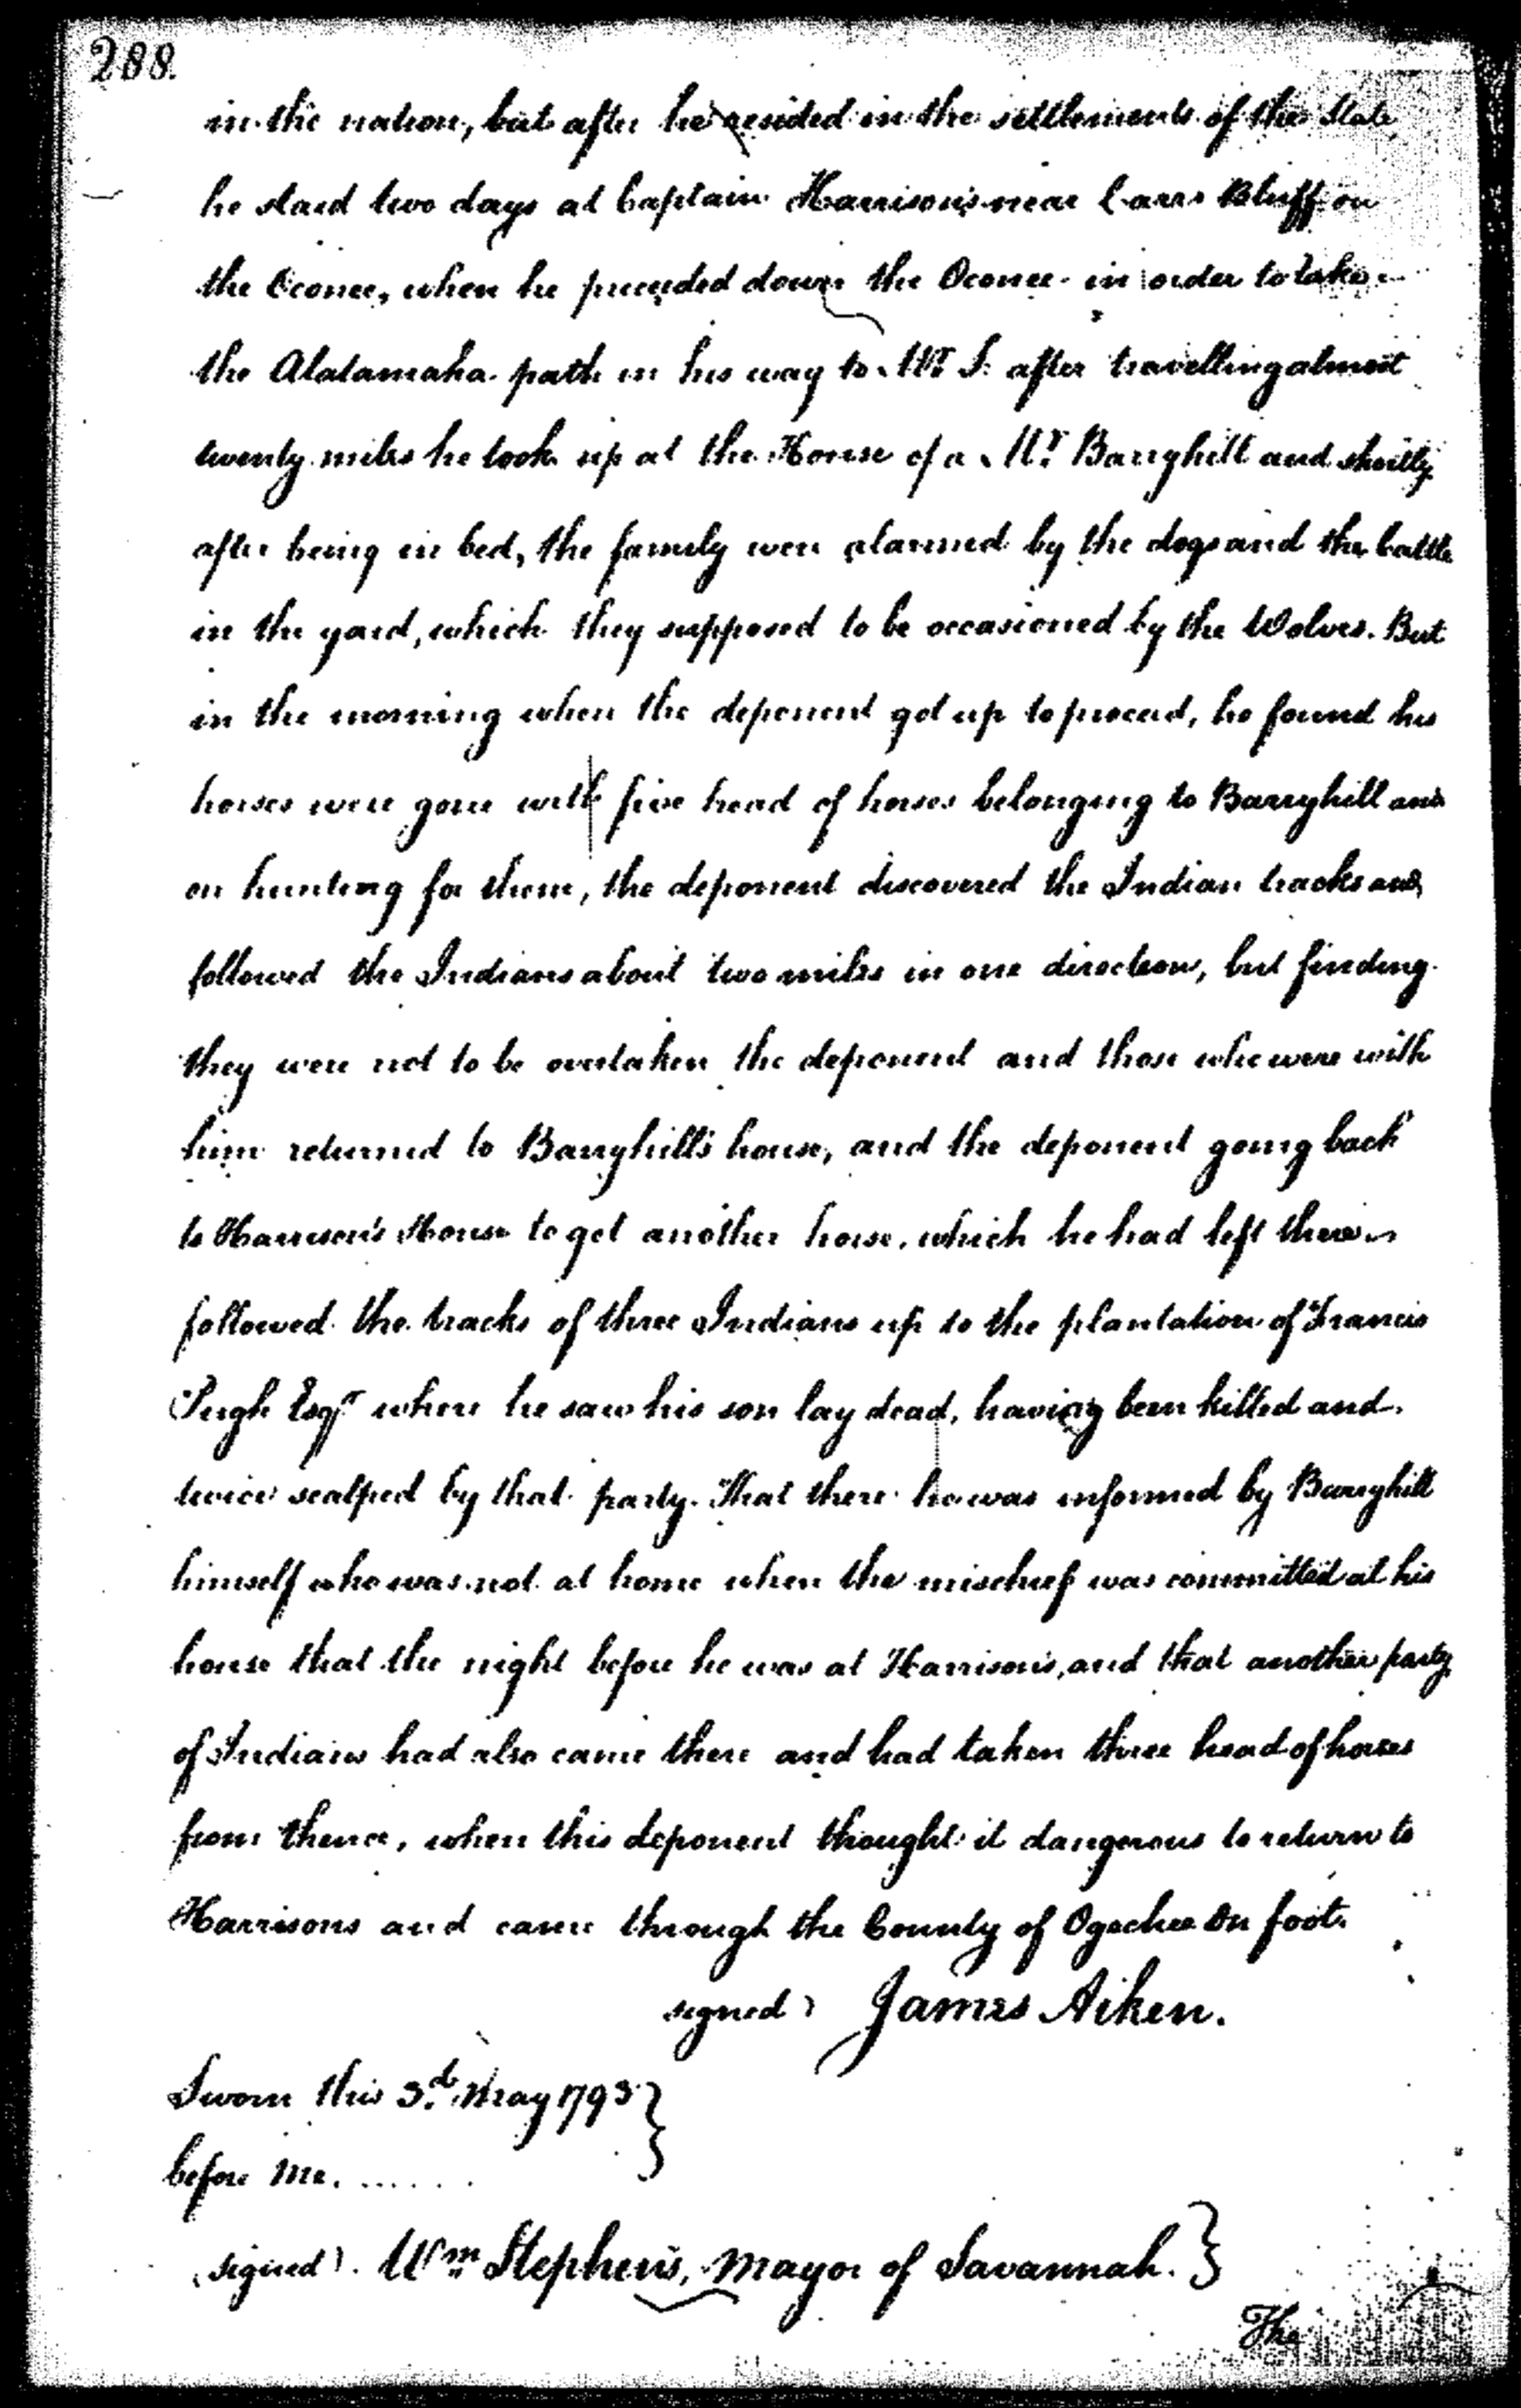 288.
in the nation, but after he resided in the settlements of the State
he staid two days at Captain Harrison's near Carrs Bluff on
the Oconee, when he proceeded down the Oconee in order to take
the Alatamaha path in his way to Mr. S. after travelling almost
twenty miles he took up at the House of a Mr. Barryhill and shortly
after being in bed, the family were alarmed by the dogs and the Cattle
in the yard, which they supposed to be occasioned by the Wolves. But
in the morning when the deponent got up to proceed, he found his
horses were gone with five head of horses belonging to Barryhill and
on hunting for them, the deponent discovered the Indian tracks and
followed the Indians about two miles in one direction, but finding
they were not to be overtaken the deponent and those who were with
him returned to Barryhill's house, and the deponent going back
to Harrison's House to get another horse, which he had left there
followed the tracks of three Indians up to the plantation of Francis
Pugh Esqr where he saw his son lay dead, having been killed and
twice scalped by that party. That there he was informed by Barryhill
himself who was not at home when the mischief was committed at his
house that the night before he was at Harrison's, and that another party
of Indians had also came there and had taken three head of horses
from thence, when this deponent thought it dangerous to return to
Harrisons and came through the County of Ogechee on foot.
signed) James Aiken.
Sworn this 3d. May 1793 }
before Me. ......
(signed). Wm. Stephens, Mayor of Savannah. }
The